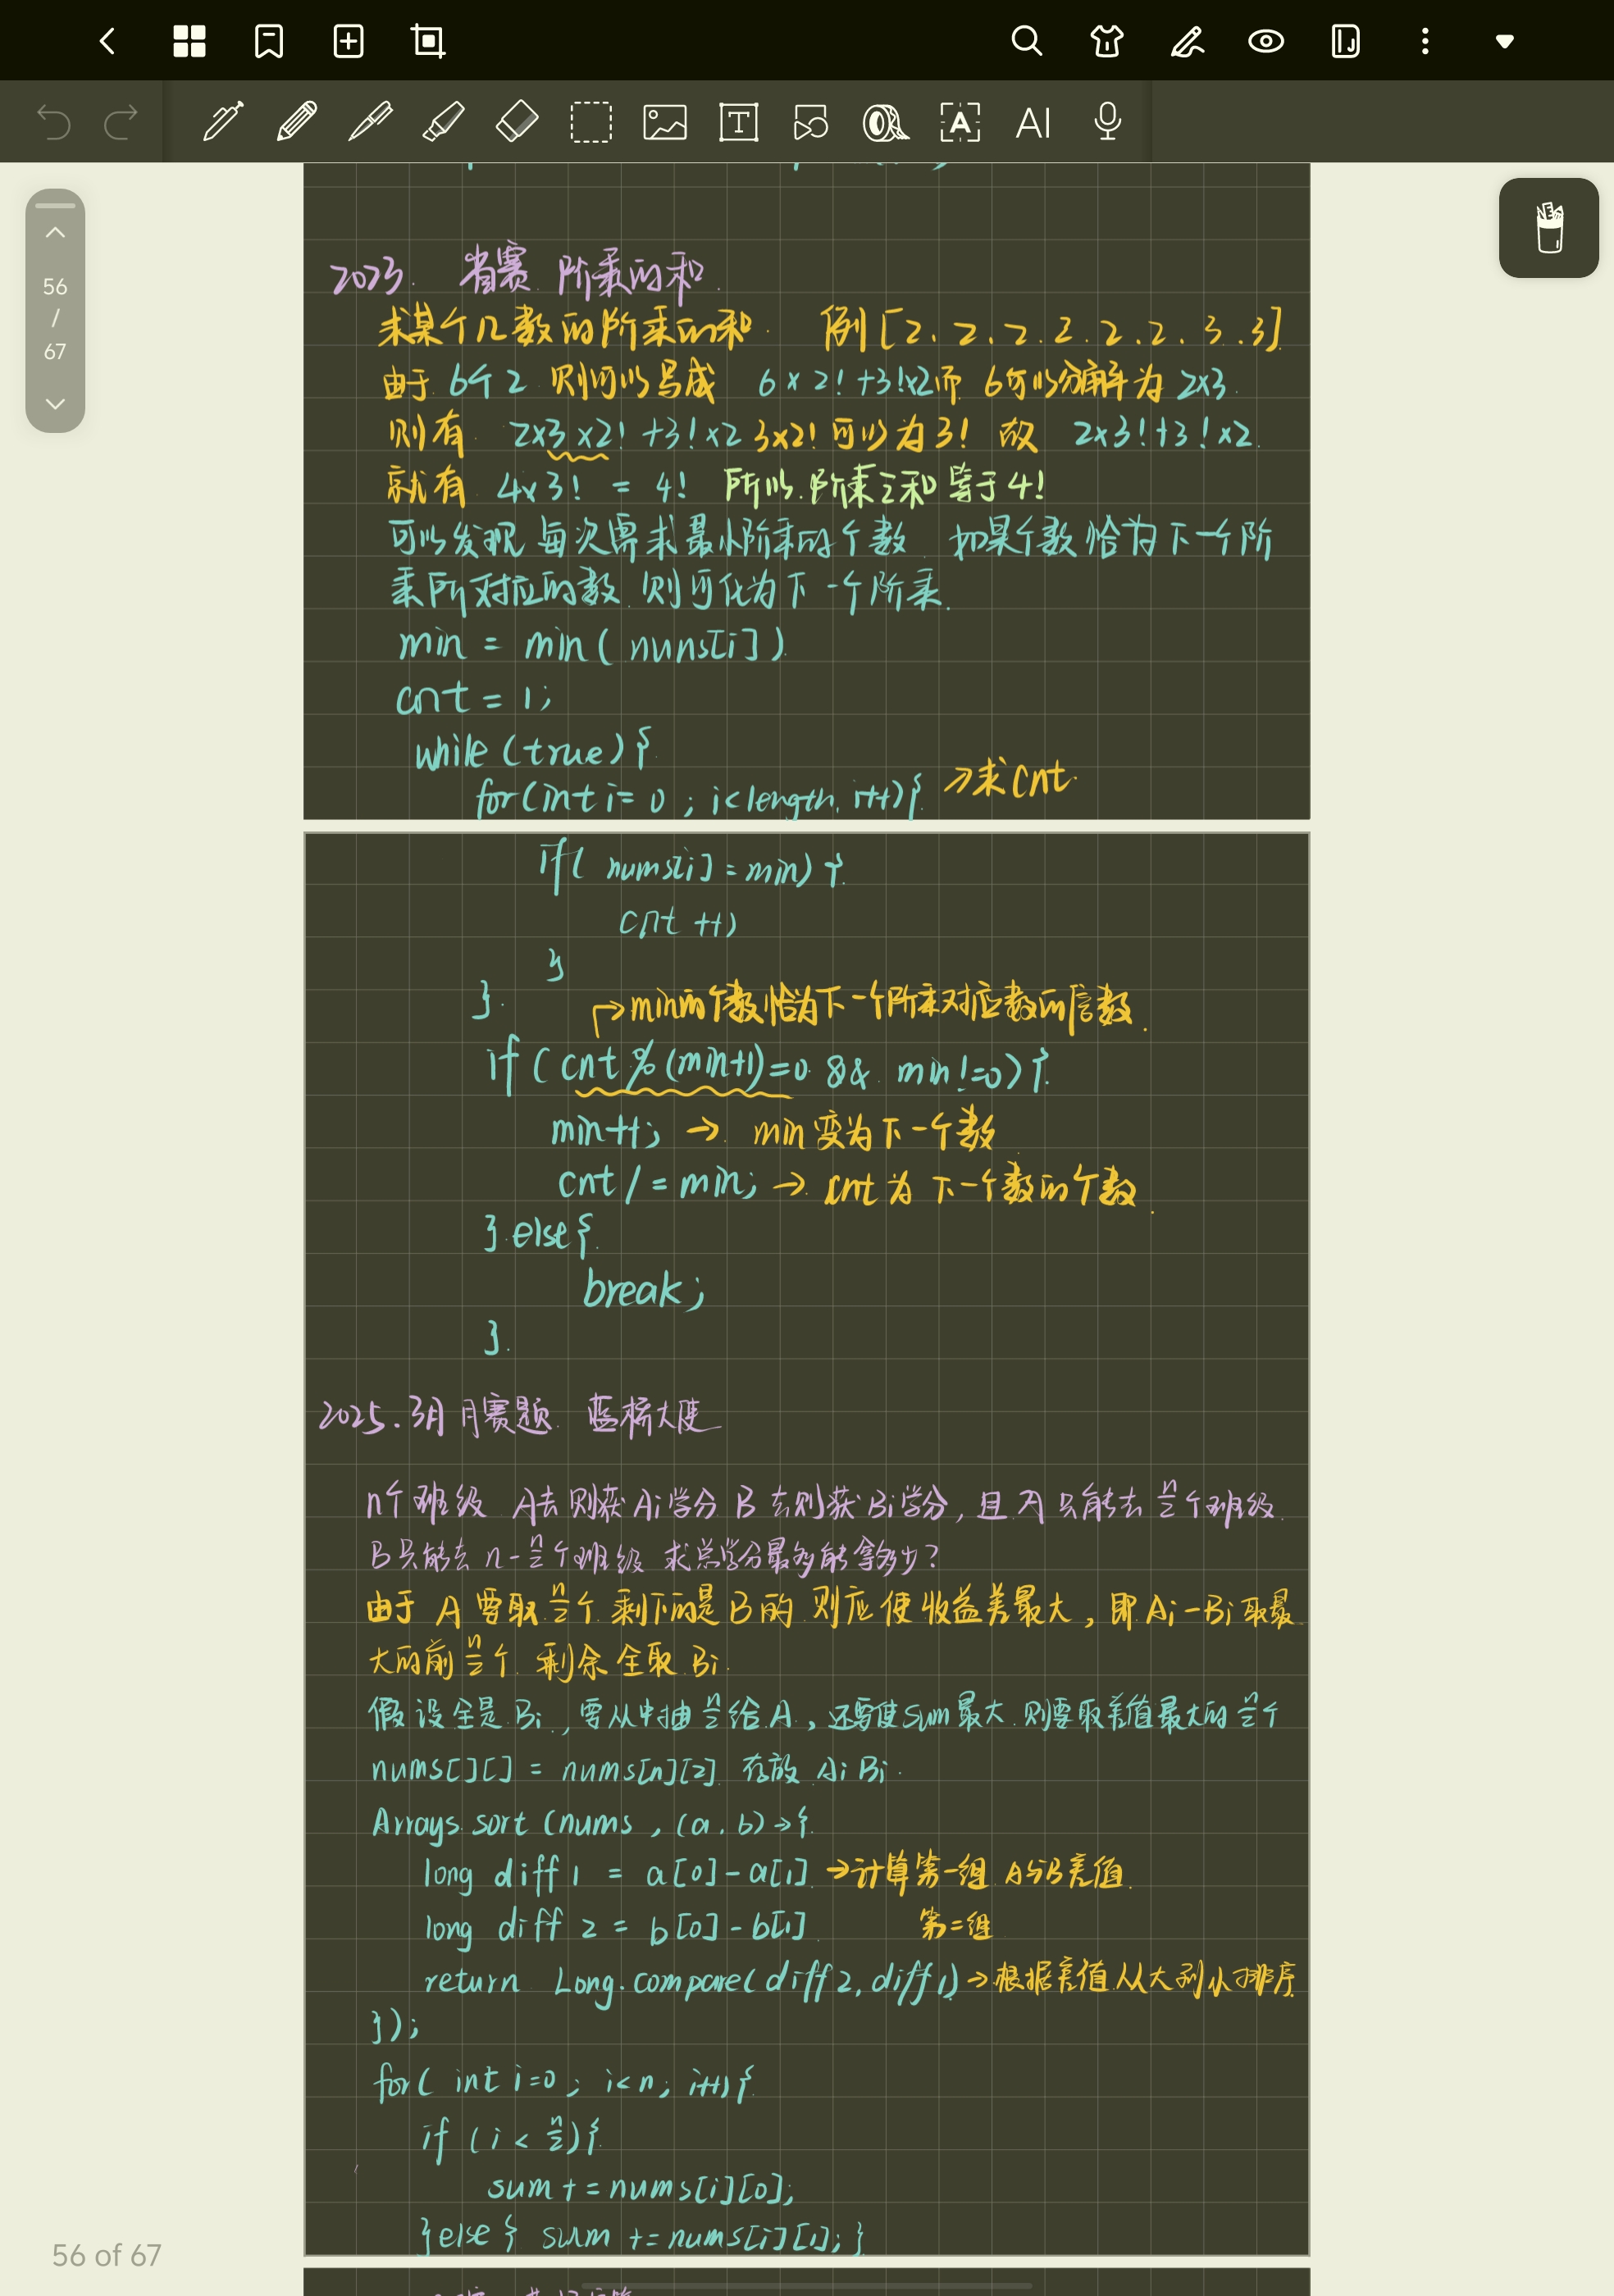 AI
56
/
67
2023. 省赛 阶乘的和
求某个几数的阶乘的和. 例[2.2.2.2.2.2.3.3]
由于 6个2 则可以写成 6×2!+3!×2 而 6可以分解为 2×3
则有 2×3×2!+3!×2 3×2!可以为3! 故 2×3!+3!×2.
就有 4×3! = 4! 所以.阶乘之和等于4!
可以发现 每次需求最小阶乘的个数 如果个数恰为下一个阶
乘所对应的数 则可化为下一个阶乘.
min = min( nuns[i])
cnt = 1;
while (true){
for(int i= 0 ; i<length, i++){ →求cnt.
if( nums[i] = min) {
cnt ++)
}
}.
→min的个数恰为下一个阶乘对应数的倍数.
if ( cnt%(min+1)=0 && min!=0) {
min++; → min变为下一个数
cnt /= min; → cnt为下一个数的个数.
}else{
break;
}.
2025.3月 月赛题 蓝桥大使
n个班级 A去则获Ai学分 B去则获Bi学分, 且A只能去 n/2 个班级
B只能去 n-n/2个班级 求总学分最多能拿多少?
由于 A要取n/2个 剩下的是B的 则应使收益差最大, 即 Ai-Bi取最
大的前n/2个 剩余全取 Bi.
假设全是Bi, 要从中抽n/2给A, 还要使Sum最大 则要取差值最大的n/2个
nums[][] = nums[n][2] 存放 Ai Bi.
Arrays.sort (nums , (a, b) →{
long diff 1 = a[0]-a[1] →计算第一组 A与B差值.
long diff 2 = b[0]-b[1] 第二组
return Long.compare(diff2, diff1) →根据差值从大到小排序
});
for( int i=0 ; i<n; i++){
if (i < n/2){
sum += nums[i][0];
}else{ sum += nums[i][1]; }
56 of 67